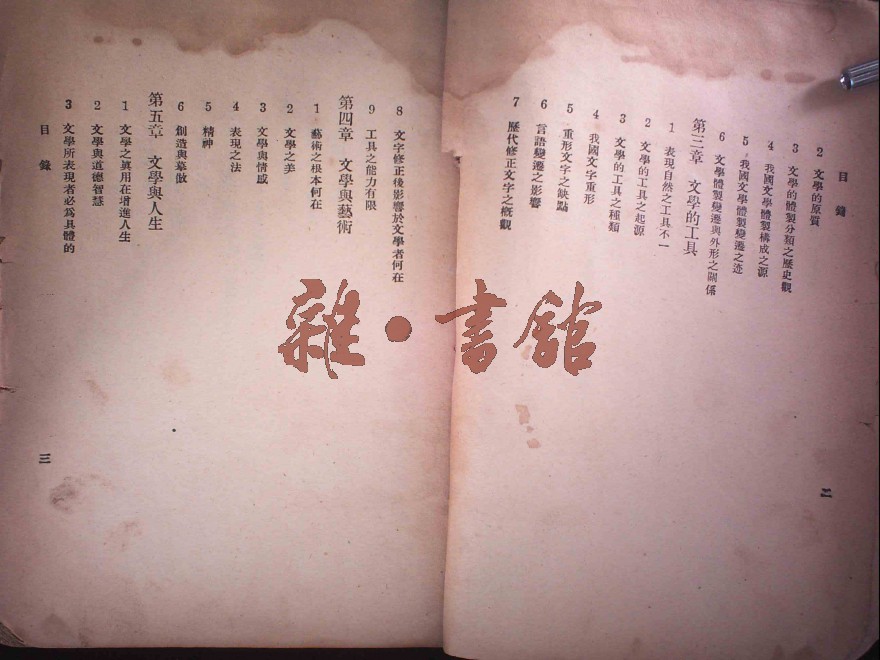 目錄
2 文學的原質
3 文學的體製分類之歷史觀
4 我國文學體製構成之源
5 我國文學體製變遷之迹
6 文學體製變遷與外形之關係
第三章 文學的工具
1 表現自然之工具不一
2 文學的工具之起源
3 文學的工具之種類
4 我國文字重形
5 重形文字之缺點
6 言語變遷之影響
7 歷代修正文字之槪觀
二
8 文字修正後影響於文學者何在
9 工具之能力有限
第四章 文學與藝術
1 藝術之根本何在
2 文學之美
3 文學與情感
4 表現之法
5 精神
6 創造與摹倣
第五章 文學與人生
1 文學之眞用在增進人生
2 文學與道德智慧
3 文學所表現者必爲具體的
目錄
三
雜·書館